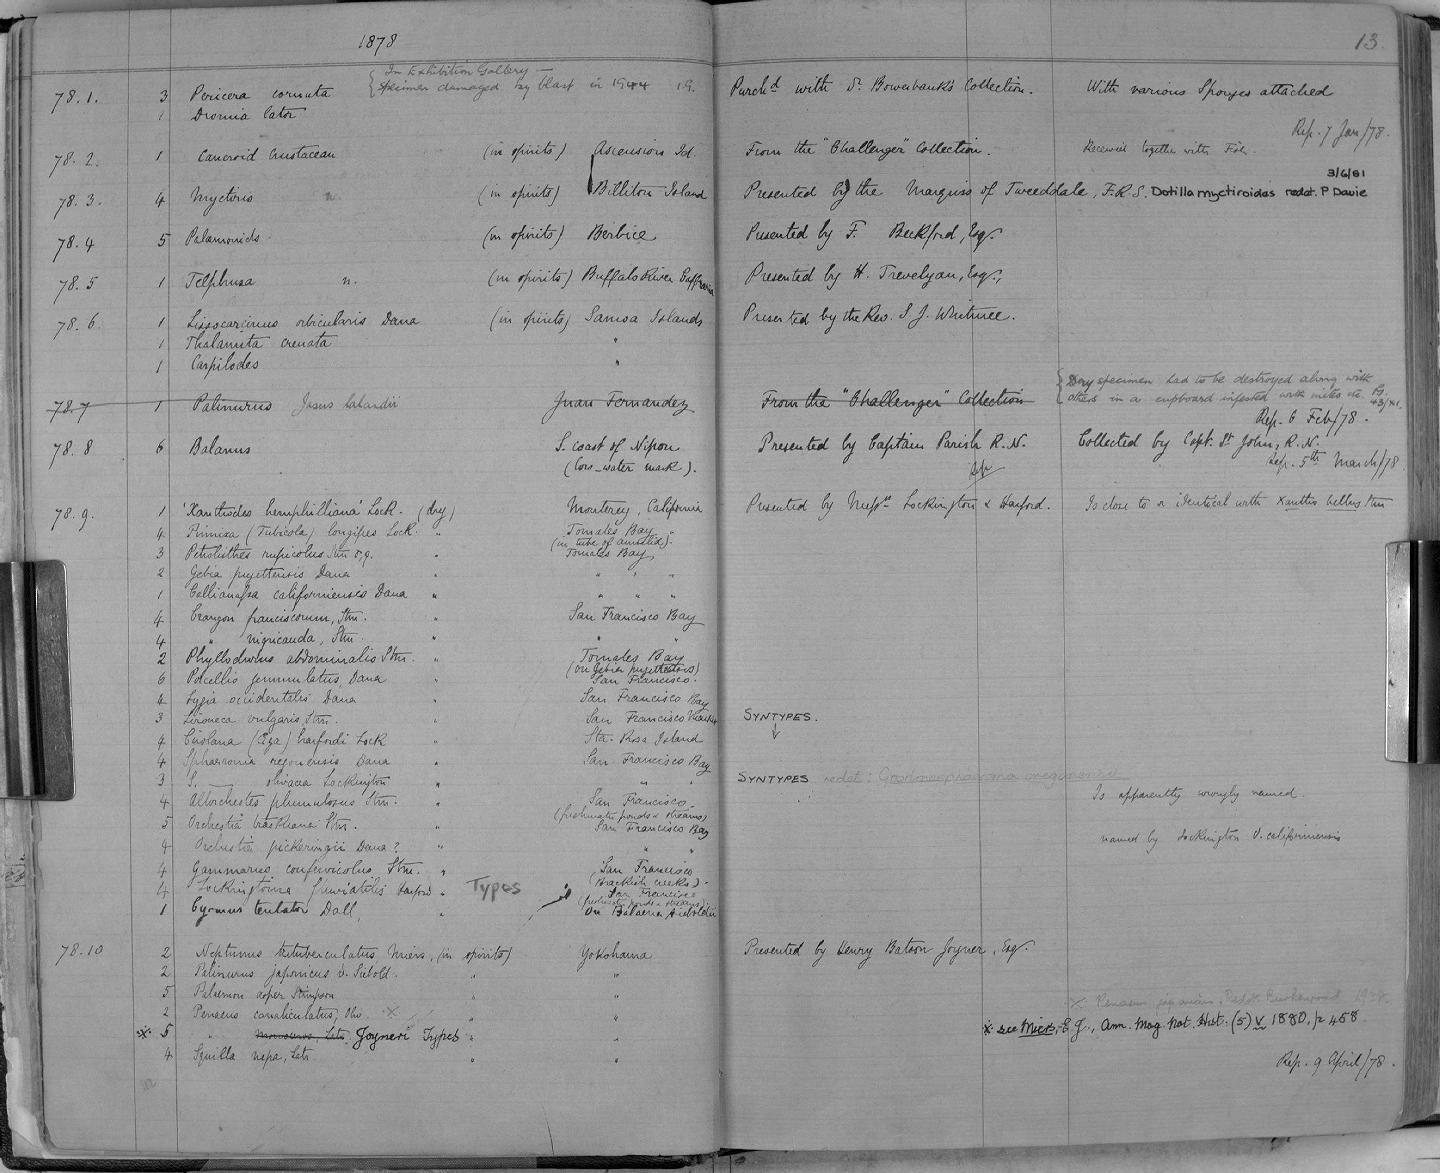 1878
13.
{ In Exhibition Gallery —
Specimen damaged by blast in 1944 I.G.
78.1. 3 Pericera cornuta Purchd with Dr. Bowerbank's Collection. With various Sponges attached
1 Dromia lator
Rep. 7 Jan/78.
78.2. 1 Cancroid Crustacean (in spirits) Ascension Id. From the "Challenger" Collection. Received together with Fish.
3/6/81
78.3. 4 Myctiris n. (in spirits) Billiton Island Presented by the Marquiss of Tweeddale, F.R.S. Dotilla myctiroides redet. P Davie
78.4 5 Palamonids (in spirits) Berbice Presented by F. Beckford, Esq.
78.5 1 Telphusa n. (in spirits) Buffalo River Caffraria Presented by H. Trevelyan, Esq.,
78.6. 1 Lissocarcinus orbicularis Dana (in spirits) Samoa Islands Presented by the Rev. S. J. Whitmee.
1 Thalamita crenata "
1 Carpilodes "
{ Dry specimen had to be destroyed along with
others in a cupboard infested with mites etc.
78.7 1 Palinurus Jasus lalandii Juan Fernandez From the "Challenger" Collection
Rep. 6 Feb/78.
78.8 6 Balanus S. coast of Nipon Presented by Captain Parish R.N. Collected by Capt. St John, R.N.
(Low-water mark). Rep. 5th March/78
78.9. 1 'Xanthodes hemphilliana' Lock. (dry) Monterey, California Presented by Messrs. Lockington & Harford. Is close to or identical with Xanthus bellus Stm
4 Pinnixa (Tubicola) longipes Lock. " Tomales Bay
(in tube of annelid).
3 Petrolisthes rupicolus Stm " Tomales Bay
2 Gebia pugettensis Dana " " " "
1 Callianassa californiensis Dana " " " "
4 Crangon franciscorum, Stm. " San Francisco Bay
4 " nigricauda, Stm. " " "
2 Phyllodurus abdominalis Stm. " Tomales Bay
(on Gebia pugettensis)
6 Porcellio gemmulatus, Dana " San Francisco.
4 Lygia occidentalis Dana " San Francisco Bay
3 Livoneca vulgaris, Stm. " San Francisco Market SYNTYPES.
4 Cirolana (Æga) harfordi Lock " Sta. Rosa Island
4 Sphæroma oregonensis Dana " San Francisco Bay
3 S. —— olivacea Lockington " " " SYNTYPES redet: Gnorimosphaeroma oregonensis
4 Allorchestes plumulosus Stm. " San Francisco Is apparently wrongly named.
(freshwater ponds & streams)
5 Orchestia traskiana Stm. " San Francisco Bay
4 Orchestia pickeringii Dana? " " " named by Lockington O. californiensis
4 Gammarus confervicolus Stm. " San Francisco
(Brackish creeks).
4 Lockingtonia fluviatilis Harford " Types San Francisco
(freshwater ponds & streams)
1 Cyamus tentator Dall, " On Balaena Sieboldii
78.10 2 Neptunus trituberculatus Miers, (in spirits) Yokohama Presented by Henry Batson Joyner, Esq.
2 Palinurus japonicus v. Siebold. " "
5 Palaemon asper Stimpson "
2 Penaeus canaliculatus, Oliv. × " "
× Penaeus japonicus, Redet. Burkenroad
× 5 " Monoceros, Latr. Joyneri Types " " × see Miers, E.J., Ann. Mag. Nat. Hist. (5) V 1880, p 458
4 Squilla nepa, Latr. " "
Rep. 9 April/78.